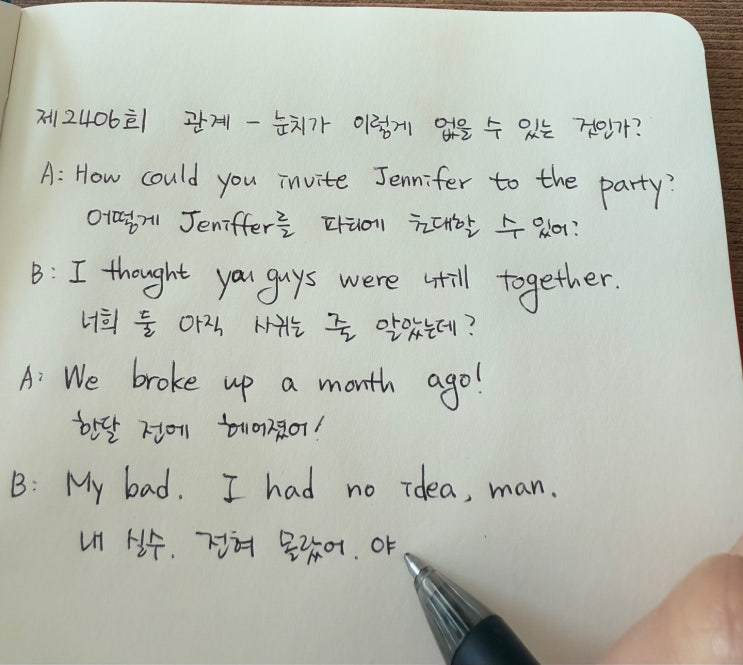 제2406회 관계 - 눈치가 이렇게 없을 수 있는 것인가?
A: How could you invite Jennifer to the party?
어떻게 Jeniffer를 파티에 초대할 수 있어?
B: I thought you guys were still together.
너희 둘 아직 사귀는 줄 알았는데?
A: We broke up a month ago!
한달 전에 헤어졌어!
B: My bad. I had no idea, man.
내 실수. 전혀 몰랐어. 야